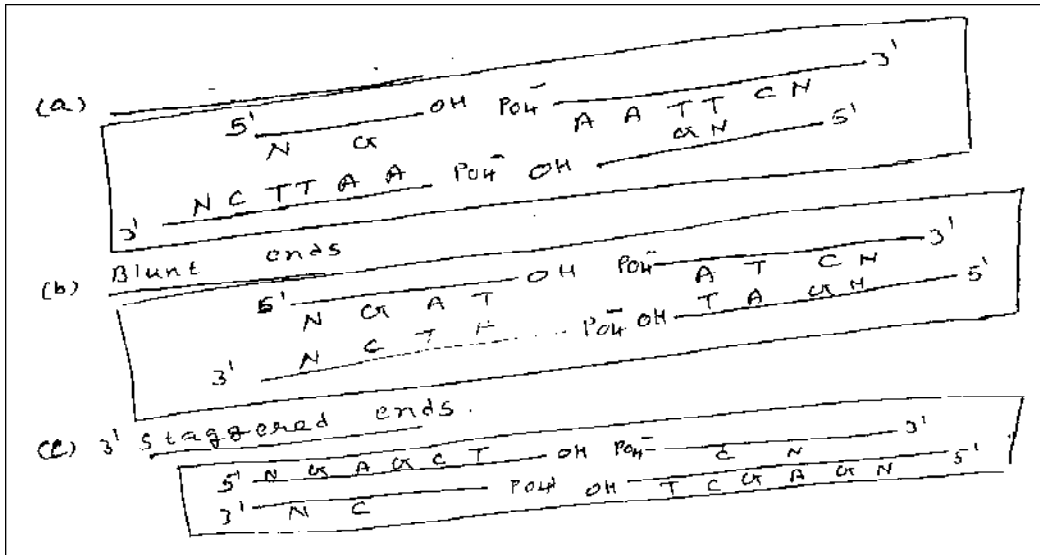 (a)
5' OH PO4- 3'
N G A A T T C N
N C T T A A PO4- OH G N 5'
3'
Blunt ends
(b) 5' OH PO4- 3'
N G A T A T C N
N C T PO4- OH T A G N 5'
3'
(c) 3' staggered ends.
5' N G A G C T OH PO4- C N 3'
3' N C PO4 OH T C G A G N 5'